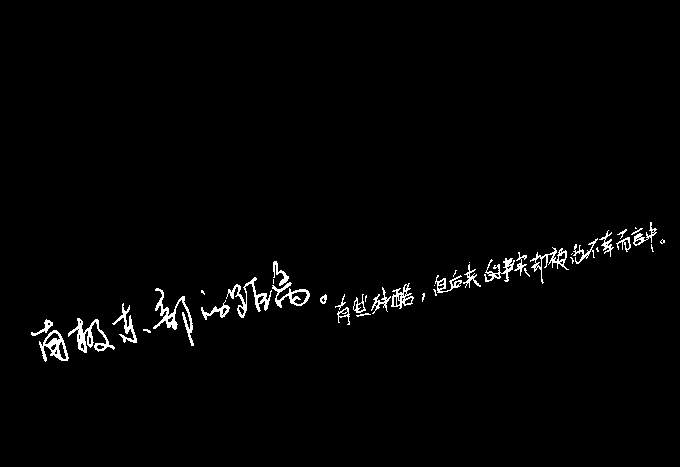 南极东部的距离。
有些残酷，但后来的事实却被他不幸而言中。